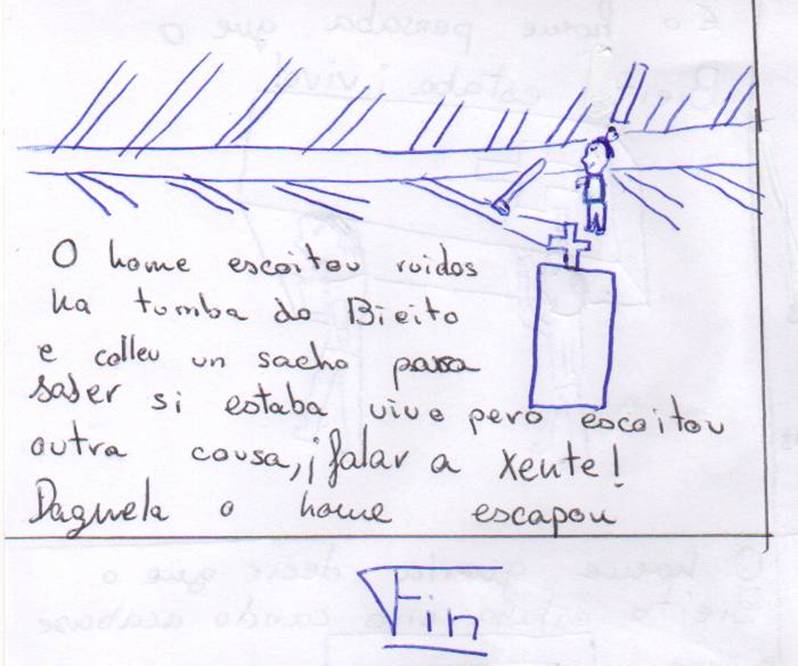 O home escoitou ruidos
na tumba do Bieito
e colleu un sacho para
saber si estaba vivo pero escoitou
outra cousa, ¡falar a xente!
Daquela o home escapou
Fin